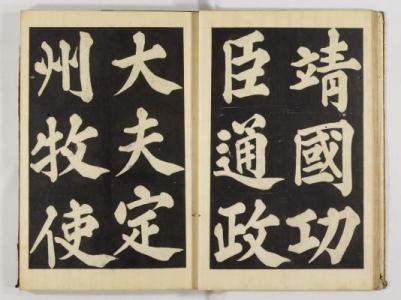 靖國功
臣通政
大夫定
州牧使